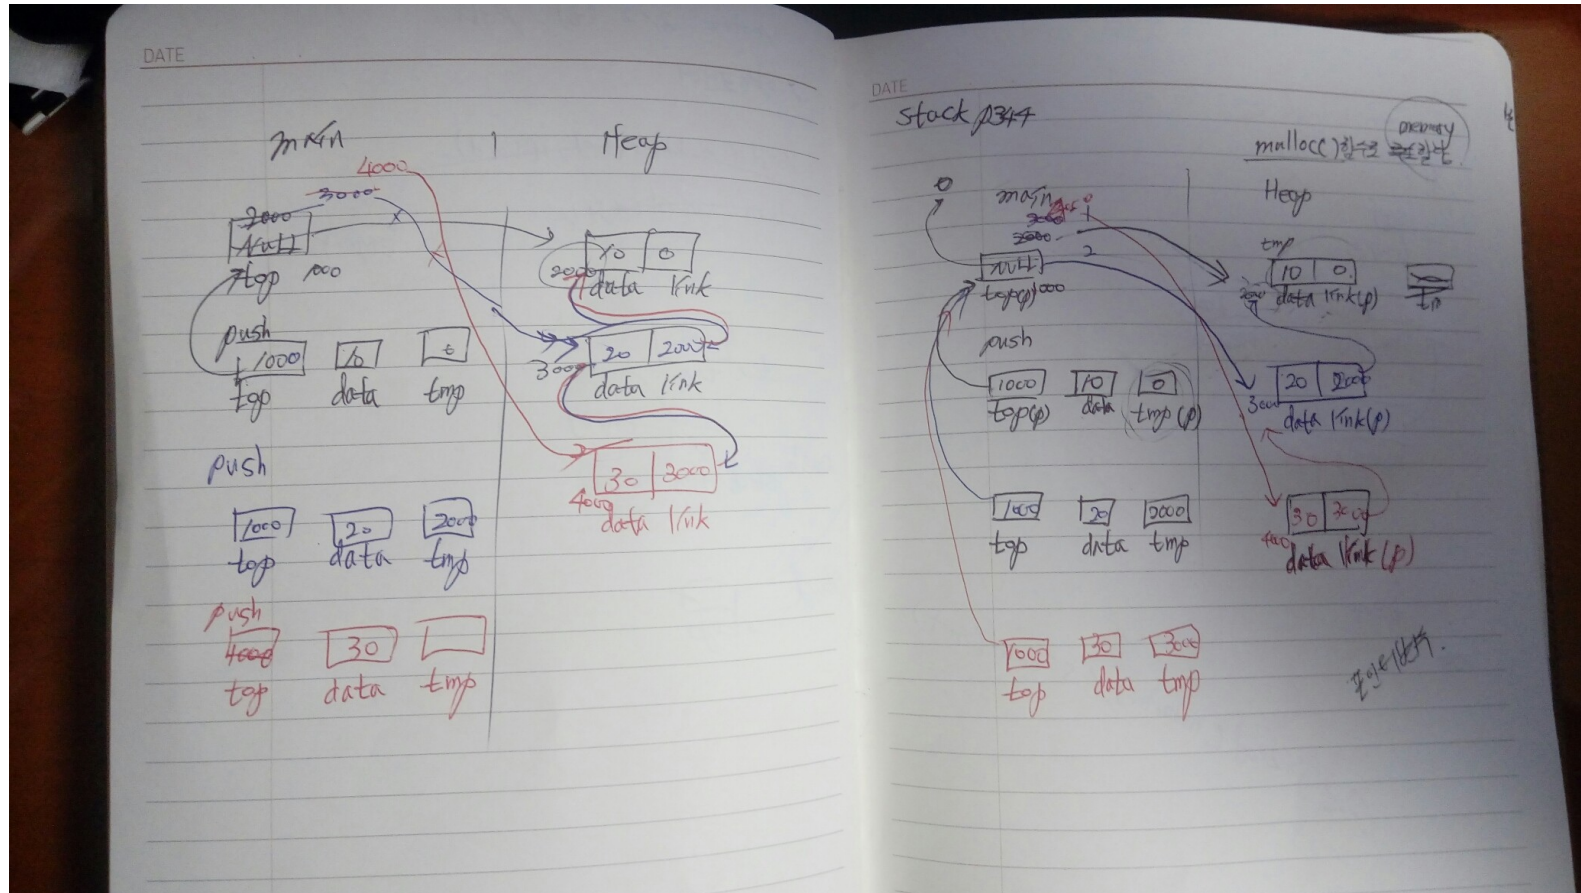 DATE
main Heap
4000
3000
2000
Null
top 1000
10 0
2000
data link
push
1000 10 0
top data tmp
20 2000
3000
data link
push
30 3000
4000
data link
1000 20 2000
top data tmp
push
4000 30
top data tmp
DATE
stack p344
memory
malloc()함수로 할당
0
main Heap
3000 1
2000
2
NULL
top(p) 1000
tmp
10 0
2000 data link(p)
push
1000 10 0
top(p) data tmp(p)
20 2000
3000
data link(p)
1000 20 2000
top data tmp
30 3000
4000
data link(p)
1000 30 3000
top data tmp